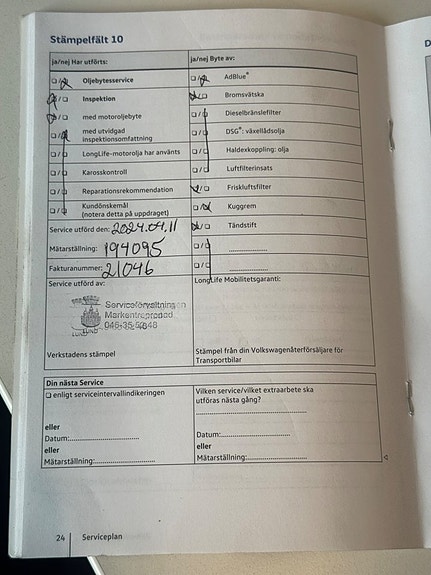 Stämpelfält 10
ja/nej Har utförts: ja/nej Byte av:
☐/☒ Oljebytesservice ☐/☒ AdBlue®
☒/☐ Inspektion ☒/☐ Bromsvätska
☒/☐ med motoroljebyte ☐/☐ Dieselbränslefilter
☐/☒ med utvidgad inspektionsomfattning ☐/☐ DSG®: växellådsolja
☐/☐ LongLife-motorolja har använts ☐/☐ Haldexkoppling: olja
☐/☐ Karosskontroll ☐/☐ Luftfilterinsats
☐/☐ Reparationsrekommendation ☒/☐ Friskluftsfilter
☐/☐ Kundönskemål (notera detta på uppdraget) ☐/☒ Kuggrem
Service utförd den: 2024.04.11 ☒/☐ Tändstift
Mätarställning: 194095 ☐/☐ ....................
Fakturanummer: 21046 ☐/☐ ....................
Service utförd av: LongLife Mobilitetsgaranti:
Serviceförvaltningen
Markentreprenad
LUND
Verkstadens stämpel Stämpel från din Volkswagenåterförsäljare för Transportbilar
Din nästa Service
☐ enligt serviceintervallindikeringen Vilken service/vilket extraarbete ska utföras nästa gång?
eller
Datum:.................... Datum:....................
eller eller
Mätarställning:.................... Mätarställning:....................
24 Serviceplan
D